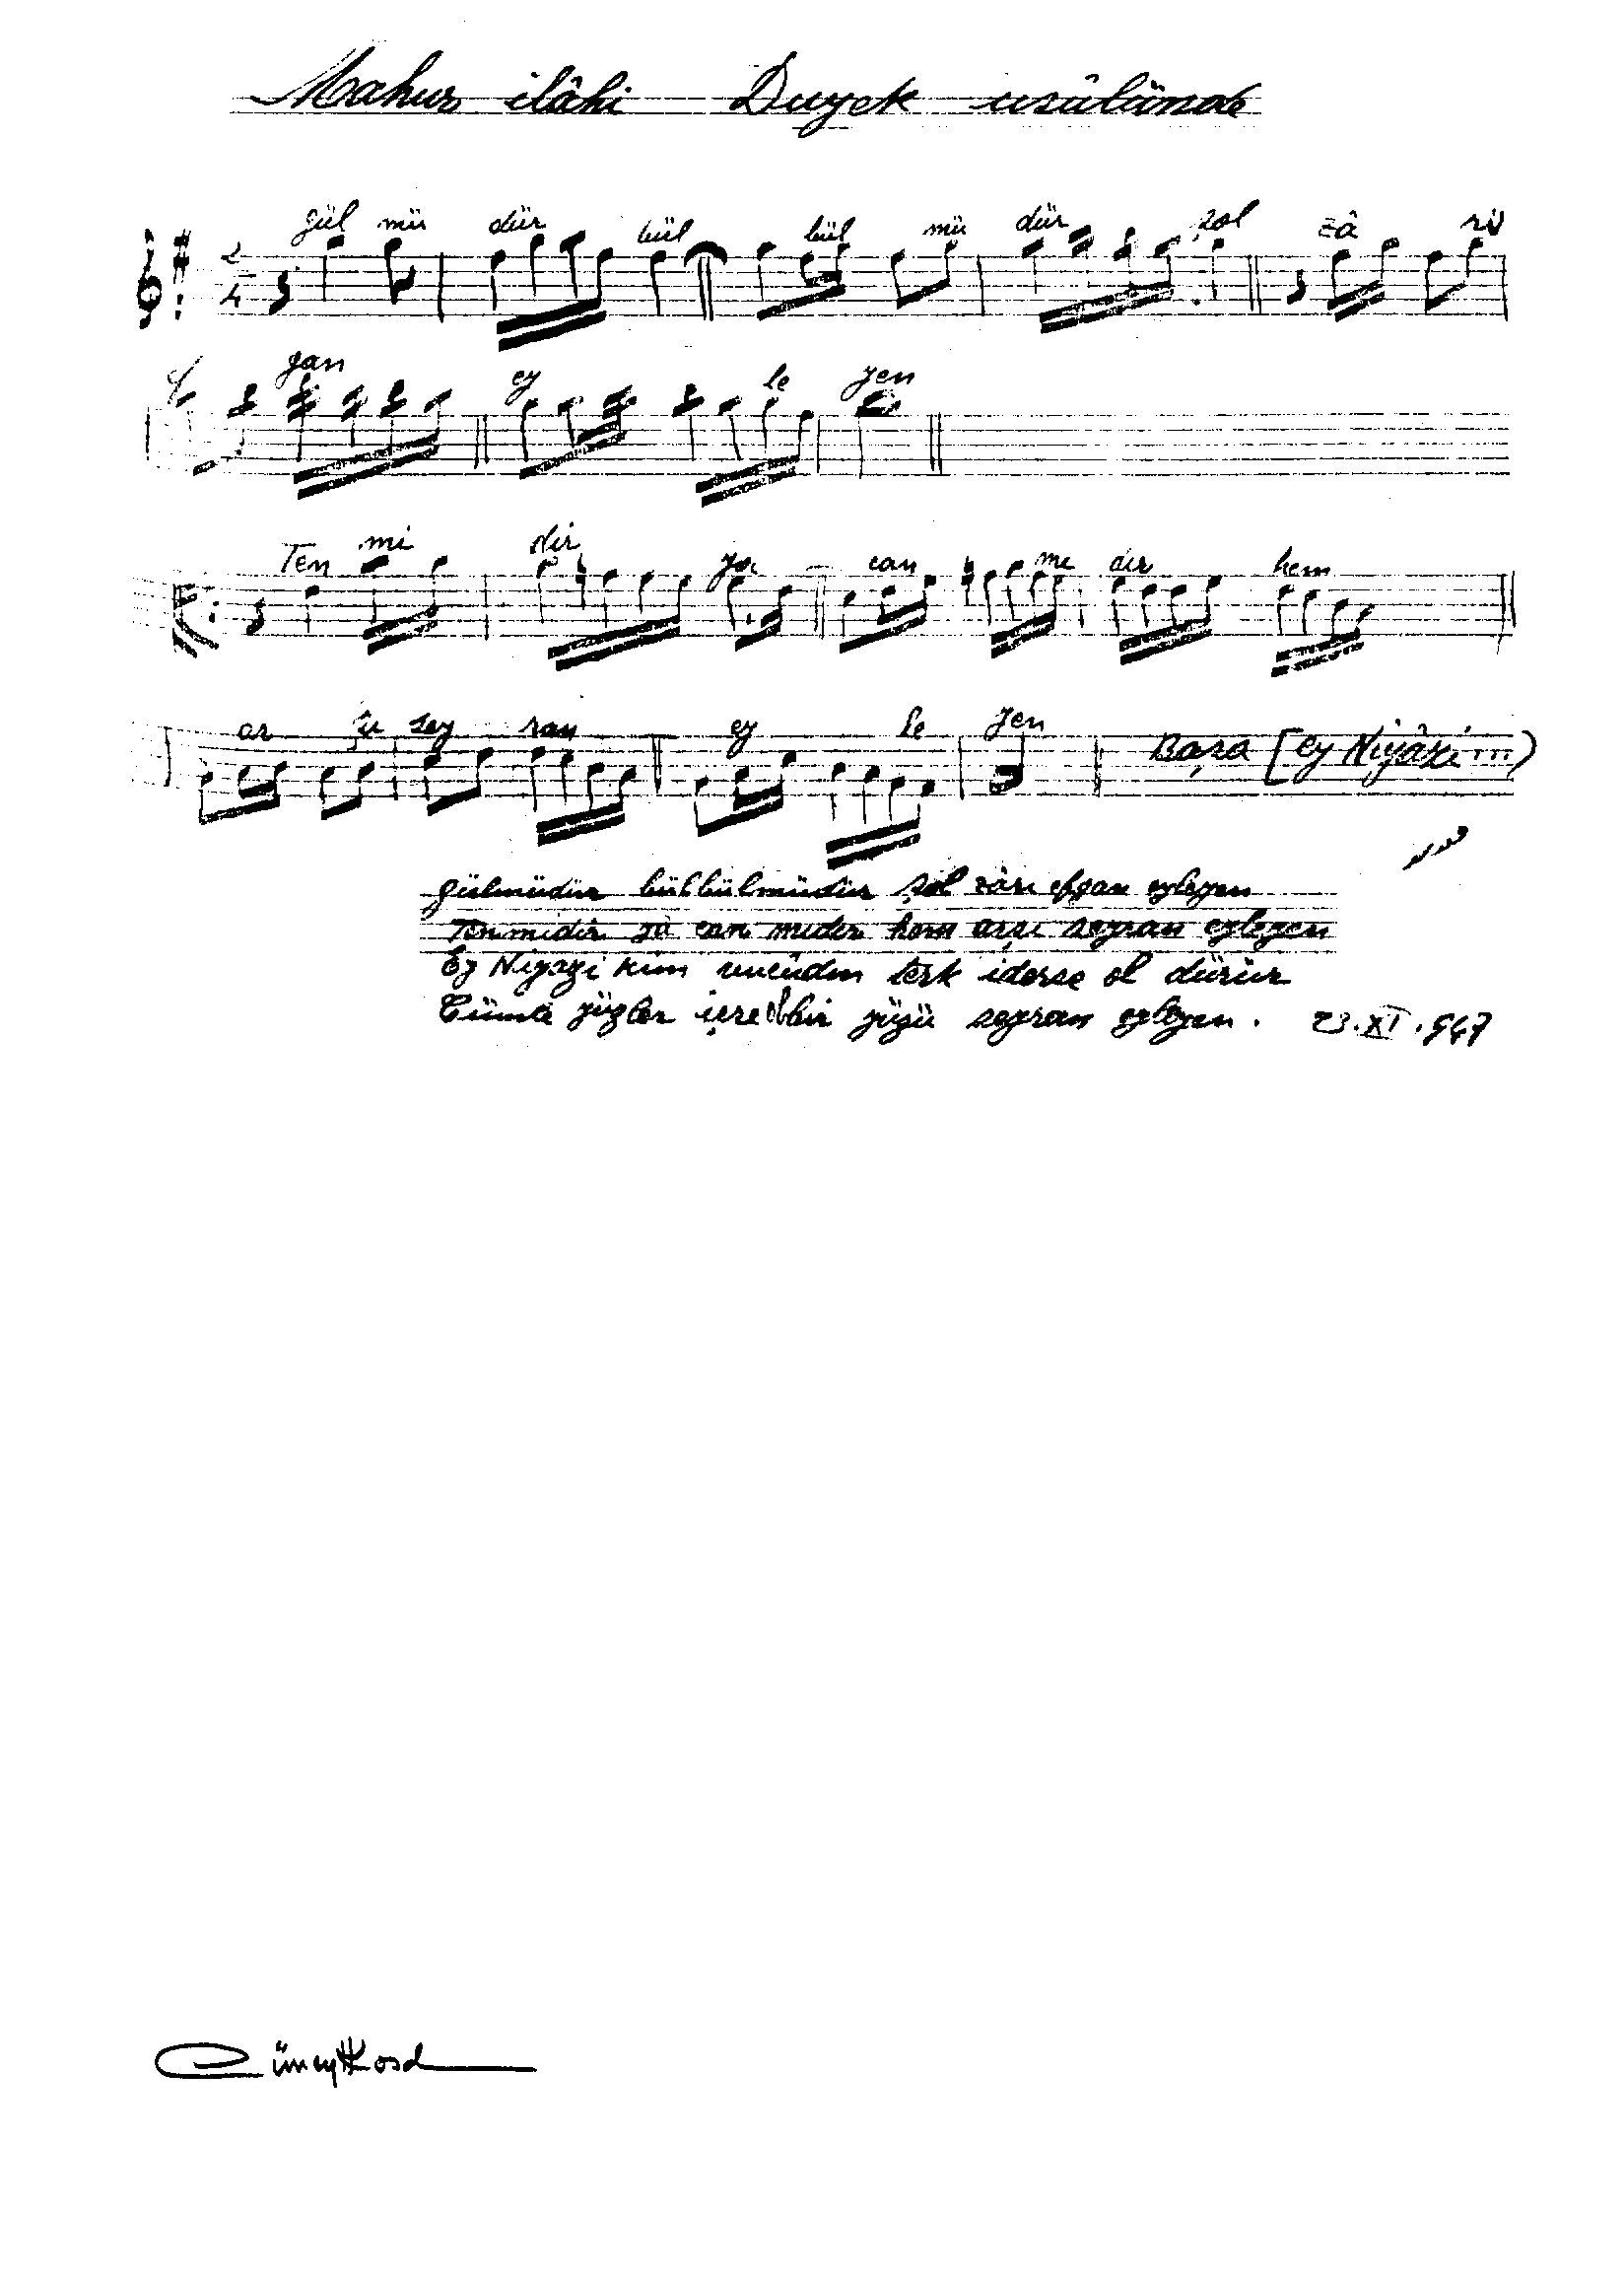 Mahur ilâhi Duyek usûlünde
2
4
gül mü dür bül bül mü dür şol zâ rı
gan ey le yen
Ten mi dir ya can mı dır hem
ar şı sey ran ey le yen Başa [ey Niyâzi...)
gülmüdür bülbülmüdür şol zârı efgan eyleyen
Tenmidir ya can mıdır hem arşı seyran eyleyen
Ey Niyazi kim vucûdın terk iderse ol dürür
Cümle yüzler içre bir yüzü seyran eyleyen. 23.XI.947
Cüneyt Kosal